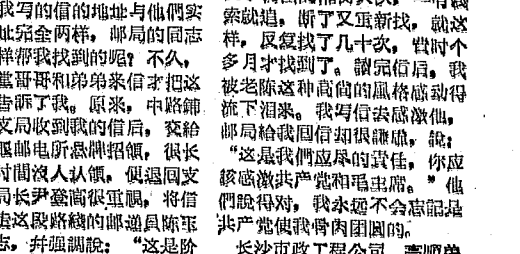 我写的信的地址与他們实
址完全两样，邮局的同志
样帮我找到的呢？不久，
堂哥哥和弟弟来信才把这
告訴了我。原来，中路鋪
支局收到我的信后，交給
邮电所悬牌招領，很长
时間沒人认領，便退回支
局长尹登高很重視，將信
去这段路綫的邮递員陈玉
志，幷强調說：“这是阶
索就追，断了又重新找，就这
样，反复找了几十次，費时个
多月才找到了。讀完信后，我
被老陈这种高尚的風格感动得
流下泪来。我写信去感激他，
邮局給我回信却很謙虛，說：
“这是我們应尽的責任，你应
該感激共产党和毛主席。”他
們說得对，我永远不会忘記是
共产党使我骨肉团圆的。
长沙市政工程公司